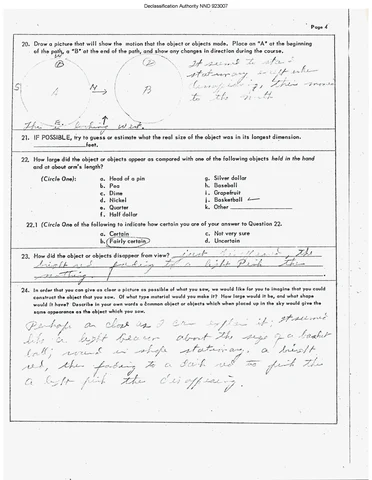 Declassification Authority NND 923007
Page 4
20. Draw a picture that will show the motion that the object or objects made. Place an "A" at the beginning
of the path, a "B" at the end of the path, and show any changes in direction during the course.
W
B
B
It seemed to stay
stationary
then moved
to the north
S
A
N
B
B
The looking west.
21. IF POSSIBLE, try to guess or estimate what the real size of the object was in its longest dimension.
feet.
22. How large did the object or objects appear as compared with one of the following objects held in the hand
and at about arm's length?
(Circle One):
a. Head of a pin
b. Pea
c. Dime
d. Nickel
e. Quarter
f. Half dollar
g. Silver dollar
h. Baseball
i. Grapefruit
j. Basketball
k. Other
22.1 (Circle One of the following to indicate how certain you are of your answer to Question 22.
a. Certain
b. Fairly certain
c. Not very sure
d. Uncertain
23. How did the object or objects disappear from view? just the
bright red fading to a light Pink then
nothing
24. In order that you can give as clear a picture as possible of what you saw, we would like for you to imagine that you could
construct the object that you saw. Of what type material would you make it? How large would it be, and what shape
would it have? Describe in your own words a common object or objects which when placed up in the sky would give the
same appearance as the object which you saw.
Perhaps as close as I can explain it: It seemed
like a light beacon about the size of a basket
ball; round in shape stationary, a bright
red, then fading to a dark red to pink then
a light pink then disappearing.